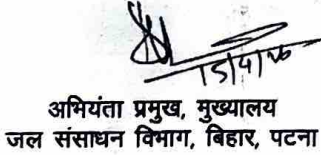 15/4/26
अभियंता प्रमुख, मुख्यालय
जल संसाधन विभाग, बिहार, पटना